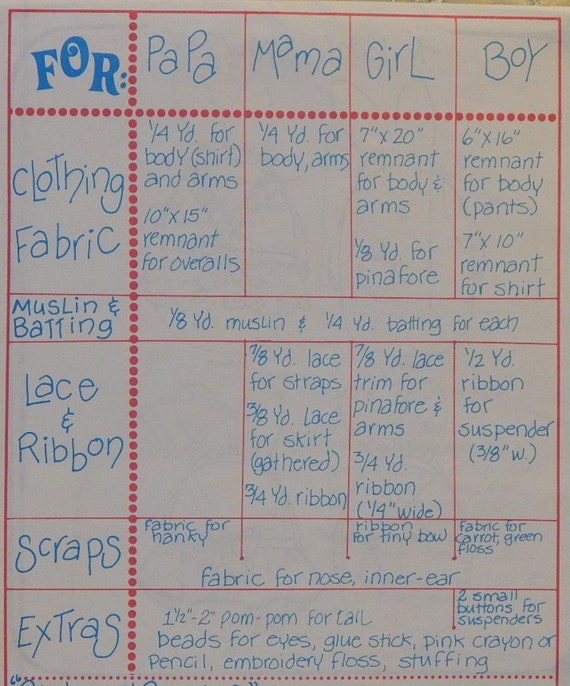 FOR: PaPa Mama GirL BOY
CLOThing Fabric
1/4 Yd. for
body (shirt)
and arms
10"x15"
remnant
for overalls
1/4 Yd. for
body, arms
7"x20"
remnant
for body &
arms
1/8 Yd. for
pinafore
6"x16"
remnant
for body
(pants)
7"x10"
remnant
for shirt
Muslin &
Batting
1/8 Yd. muslin & 1/4 Yd. batting for each
Lace
&
Ribbon
7/8 Yd. lace
for straps
3/8 Yd. Lace
for skirt
(gathered)
3/4 Yd. ribbon
7/8 Yd. lace
trim for
pinafore &
arms
3/4 Yd.
ribbon
(1/4" wide)
1/2 Yd.
ribbon
for
suspender
(3/8" w.)
Scraps
fabric for
hanky
ribbon
for tiny bow
fabric for
carrot, green
floss
fabric for nose, inner-ear
Extras
2 small
buttons for
suspenders
1 1/2"-2" pom-pom for tail
beads for eyes, glue stick, pink crayon or
pencil, embroidery floss, stuffing